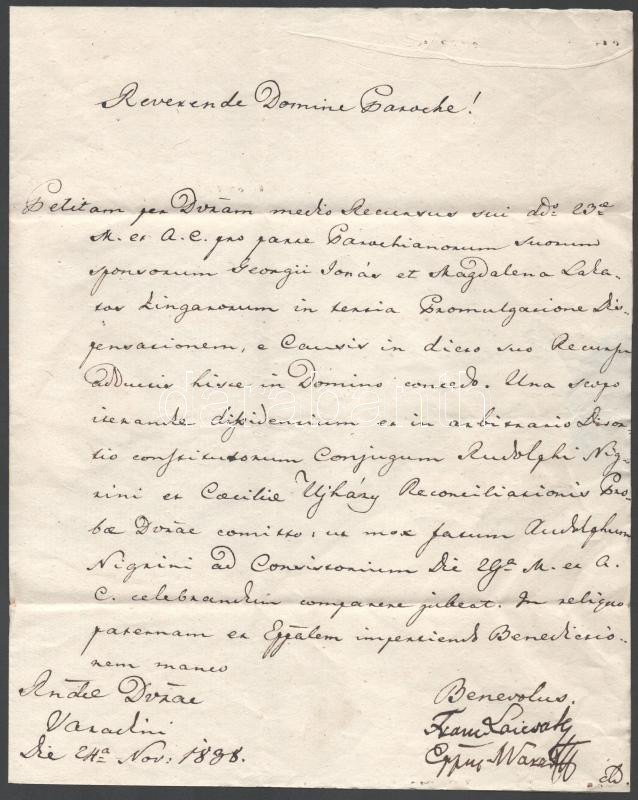 Reverende Domine Paroche!
Petitam per Dvram medio Recursus sui ddo 23æ
M. et A. C. pro parte Parochianorum suorum
sponsorum Georgii Jonás et Magdalena Laka-
tos Zingarorum in tertia Promulgatione Dis-
pensationem, e Causis in dicto suo Recursu
adductis hisce in Domino concedo. Una scopo
iterandæ dissidentium et in arbitrario Divor-
tio constitutorum Conjugum Rudolphi Nig-
rini et Cæciliæ Ujházy Reconciliationis Pro-
bæ Dvræ comitto, ut mox fatum Rudolphum
Nigrini ad Consistorium Die 29a M. et A.
C. celebrandum comparere jubeat. In reliquo
paternam et Eppalem impertiendo Benedictio-
nem maneo
Rndæ Dvræ
Benevolus.
Varadini
Franc Laicsák
Die 24a Nov: 1838.
Eppus Varad
databanib